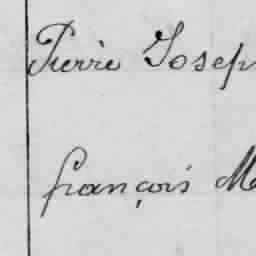 Pierre Josep
françois M